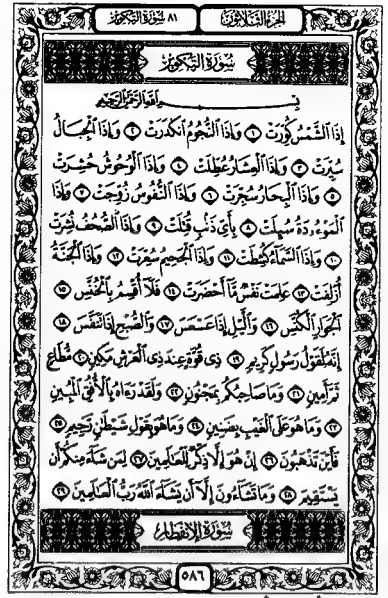 الجزء الثلاثون ٨١ سورة التكوير
سورة التكوير
بسم الله الرحمن الرحيم
إِذَا الشَّمْسُ كُوِّرَتْ ١ وَإِذَا النُّجُومُ انكَدَرَتْ ٢ وَإِذَا الْجِبَالُ
سُيِّرَتْ ٣ وَإِذَا الْعِشَارُ عُطِّلَتْ ٤ وَإِذَا الْوُحُوشُ حُشِرَتْ
٥ وَإِذَا الْبِحَارُ سُجِّرَتْ ٦ وَإِذَا النُّفُوسُ زُوِّجَتْ ٧ وَإِذَا
الْمَوْءُودَةُ سُئِلَتْ ٨ بِأَيِّ ذَنبٍ قُتِلَتْ ٩ وَإِذَا الصُّحُفُ نُشِرَتْ
١٠ وَإِذَا السَّمَاءُ كُشِطَتْ ١١ وَإِذَا الْجَحِيمُ سُعِّرَتْ ١٢ وَإِذَا الْجَنَّةُ
أُزْلِفَتْ ١٣ عَلِمَتْ نَفْسٌ مَّا أَحْضَرَتْ ١٤ فَلَا أُقْسِمُ بِالْخُنَّسِ ١٥
الْجَوَارِ الْكُنَّسِ ١٦ وَالَّيْلِ إِذَا عَسْعَسَ ١٧ وَالصُّبْحِ إِذَا تَنَفَّسَ ١٨
إِنَّهُ لَقَوْلُ رَسُولٍ كَرِيمٍ ١٩ ذِي قُوَّةٍ عِندَ ذِي الْعَرْشِ مَكِينٍ ٢٠ مُّطَاعٍ
ثَمَّ أَمِينٍ ٢١ وَمَا صَاحِبُكُم بِمَجْنُونٍ ٢٢ وَلَقَدْ رَءَاهُ بِالْأُفُقِ الْمُبِينِ
٢٣ وَمَا هُوَ عَلَى الْغَيْبِ بِضَنِينٍ ٢٤ وَمَا هُوَ بِقَوْلِ شَيْطَٰنٍ رَّجِيمٍ ٢٥
فَأَيْنَ تَذْهَبُونَ ٢٦ إِنْ هُوَ إِلَّا ذِكْرٌ لِّلْعَالَمِينَ ٢٧ لِمَن شَاءَ مِنكُمْ أَن
يَسْتَقِيمَ ٢٨ وَمَا تَشَاءُونَ إِلَّا أَن يَشَاءَ اللَّهُ رَبُّ الْعَالَمِينَ ٢٩
سورة الانفطار
٥٨٦